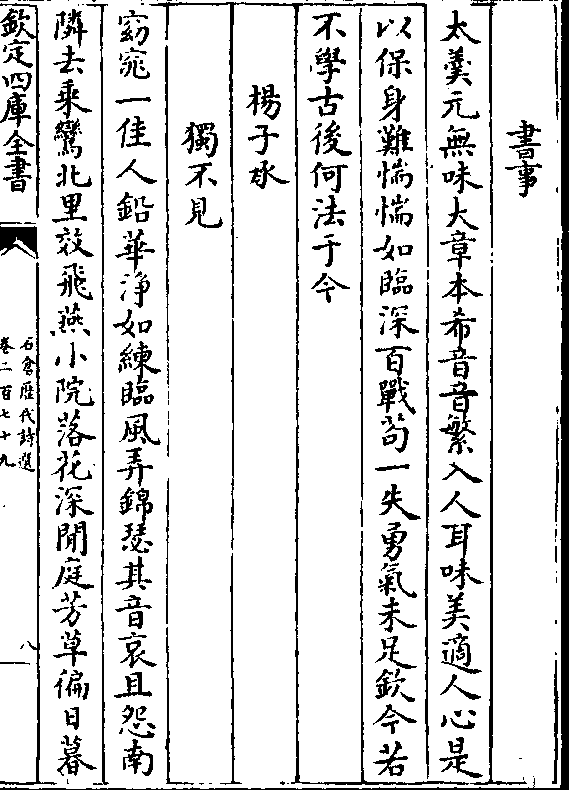 書事
太羹元無味大章本希音音繁入人耳味美適人心是
以保身難惴惴如臨深百戰苟一失勇氣未足欽今若
不學古後何法于今
楊子承
獨不見
窈窕一佳人鉛華淨如練臨風弄錦瑟其音哀且怨南
隣去乗鸞北里效飛燕小院落花深閒庭芳草徧日暮
欽定四庫全書
石倉歴代詩選
卷二百七十九
八